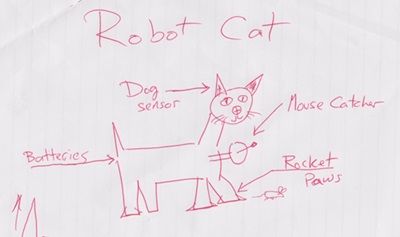 Robot Cat
Dog
sensor
Mouse Catcher
Batteries
Rocket
Paws